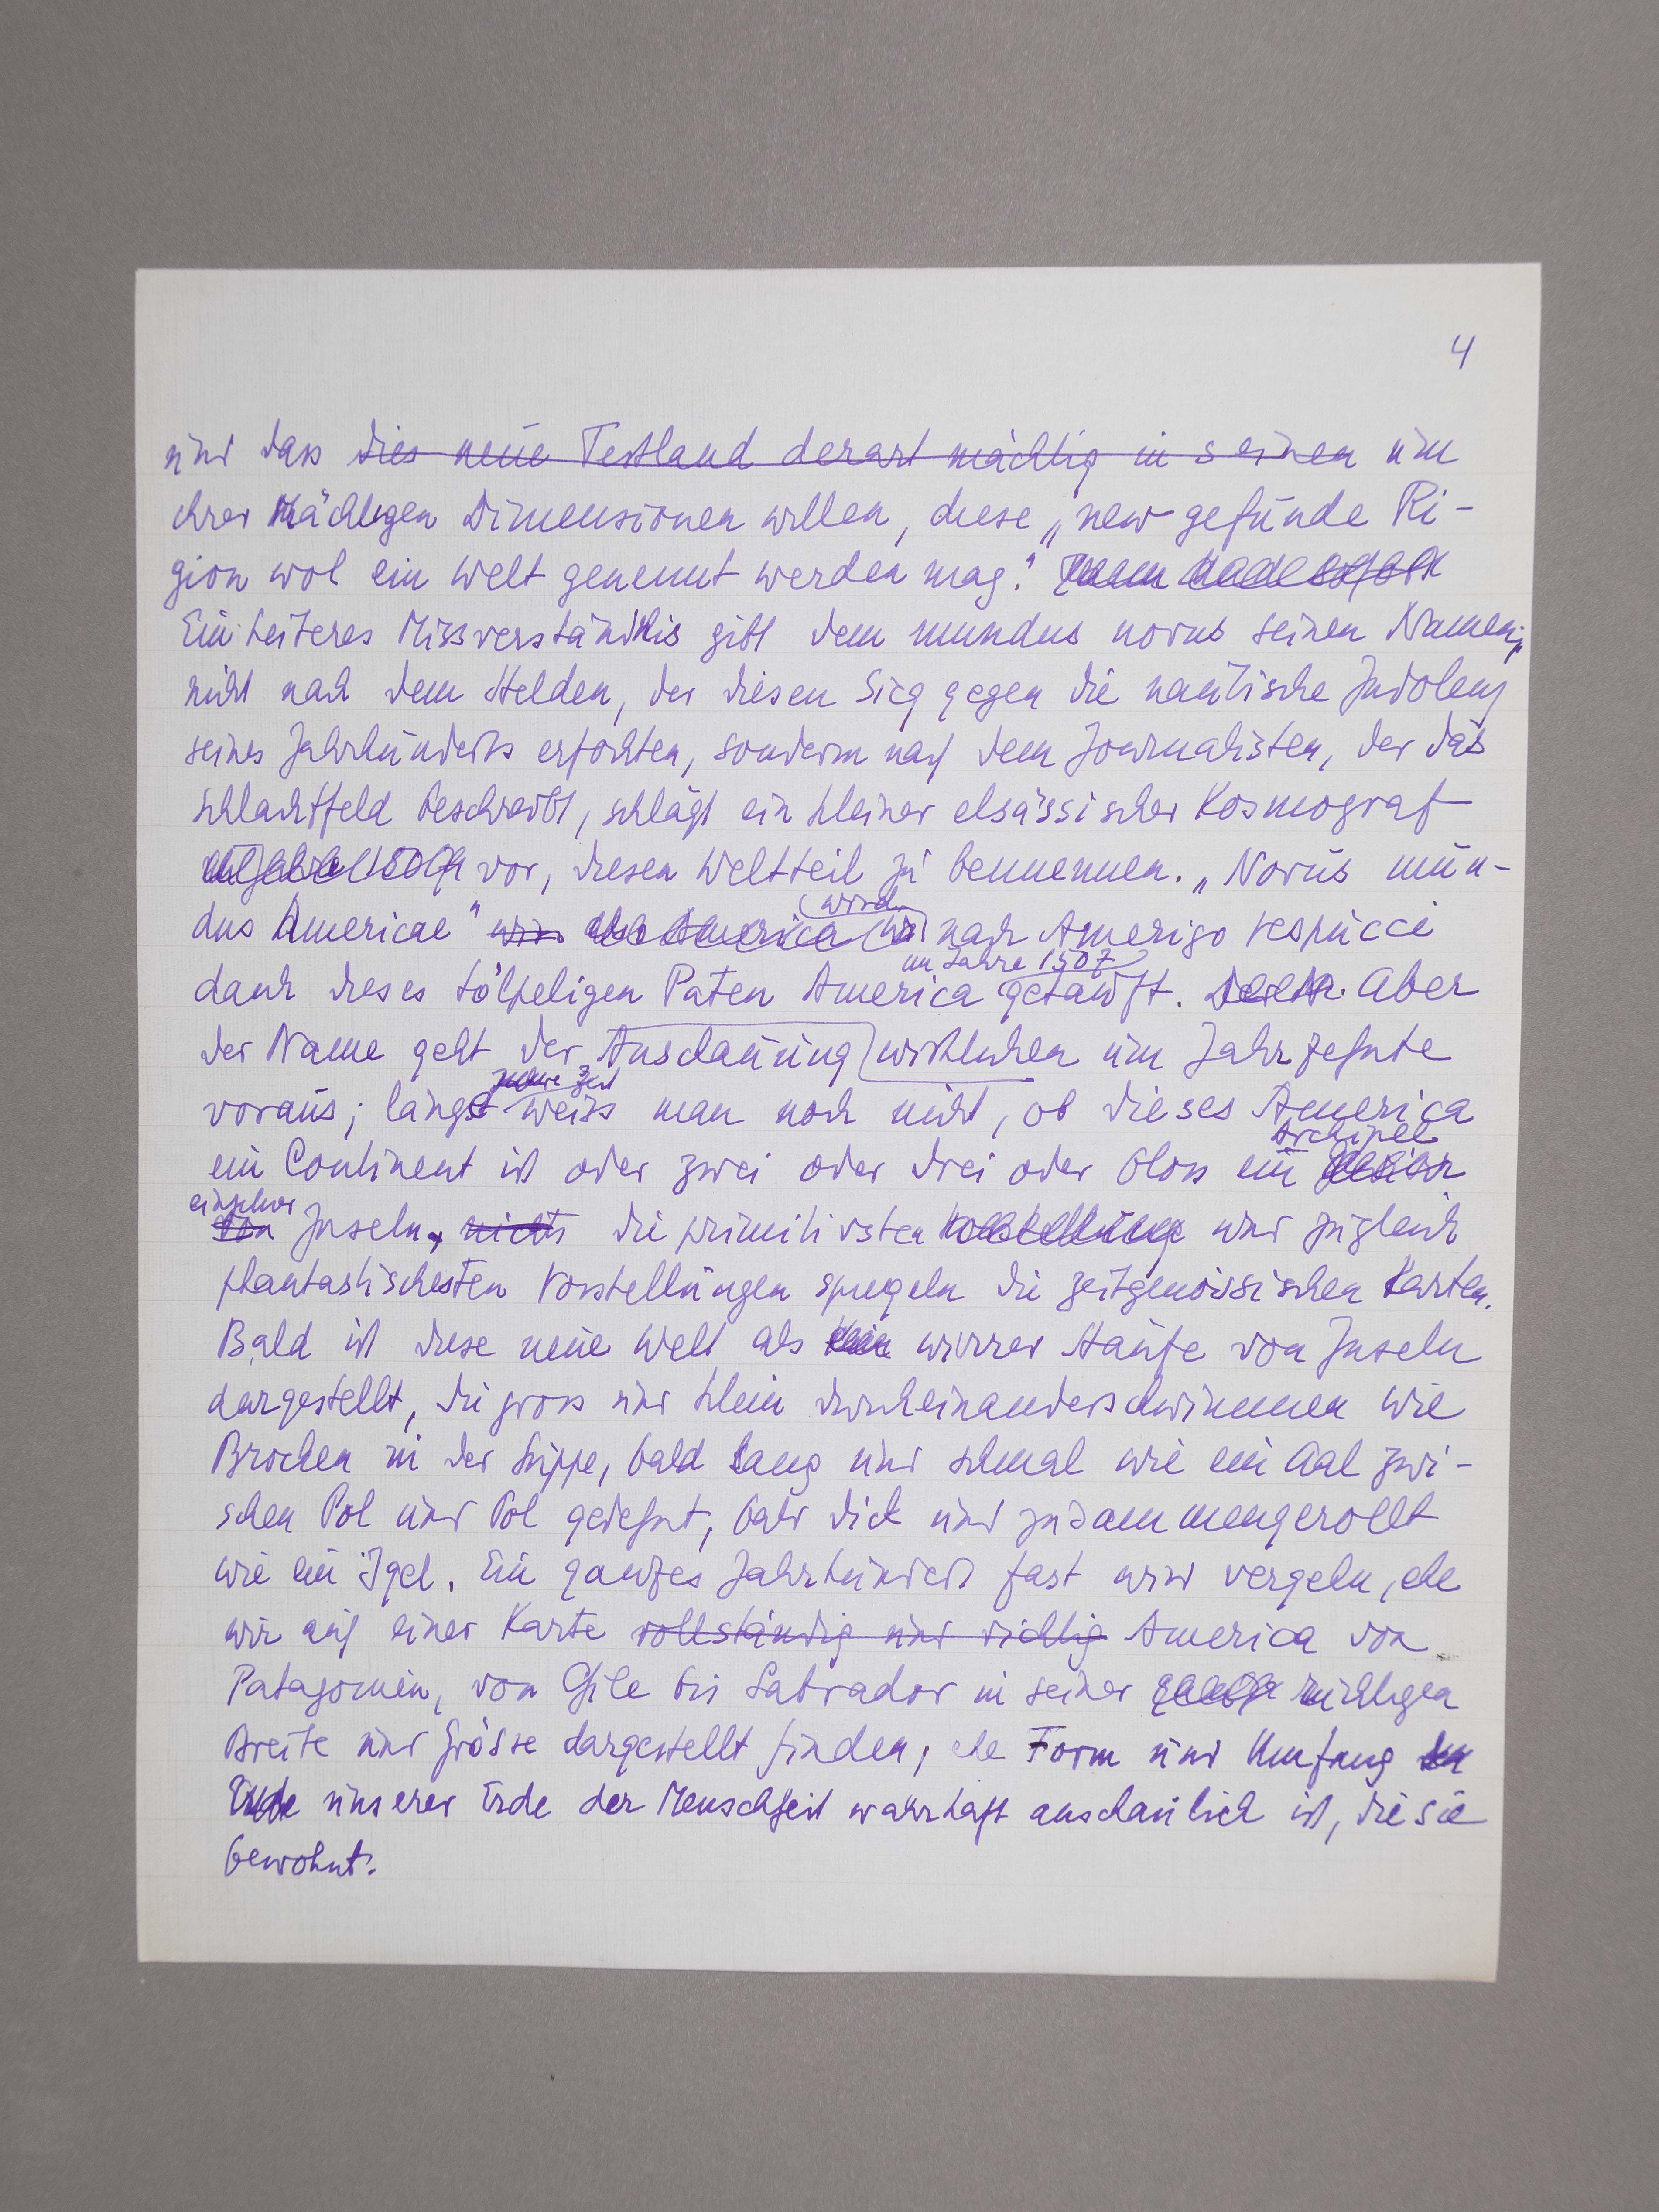 4
und dass dies neue Festland derart mächtig in seinen um
ihrer mächtigen Dimensionen willen, diese „new gefunde Ri-
gion wol ein Welt genennt werden mag."
Ein heiteres Missverständnis gibt dem mundus novus seinen Namen;
nicht nach dem Helden, der diesen Sieg gegen die nautische Indolenz
seines Jahrhunderts erfochten, sondern nach dem Journalisten, der das
Schlachtfeld beschreibt, schlägt ein kleiner elsässischer Kosmograf
vor, diesen Weltteil zu bennennen. „Novus mun-
wird
dus Americae" nach Amerigo Vespucci
im Jahre 1507
dank dieses tölpeligen Paten America getauft. Aber
der Name geht der Anschauung wirklichen um Jahrzehnte
voraus; längst weiss man noch nicht, ob dieses America
Archipel
ein Continent ist oder zwei oder drei oder bloss ein
einzelner
von Inseln, nichts die primitivsten und zugleich
phantastischesten Vorstellungen spiegeln die zeitgenössischen Karten.
Bald ist diese neue Welt als ein wirrer Haufe von Inseln
dargestellt, die gross und klein durcheinanderschwimmen wie
Brocken in der Suppe, bald lang und schmal wie ein Aal zwi-
schen Pol und Pol gedehnt, bald dick und zusammengerollt
wie ein Igel. Ein ganzes Jahrhundert fast wird vergehn, ehe
wir auf einer Karte vollständig und richtig America von
Patagonien, von Chile bis Labrador in seiner richtigen
Breite und Grösse dargestellt finden, ehe Form und Umfang
Erde unserer Erde der Menschheit wahrhaft anschaulich ist, die sie
bewohnt.